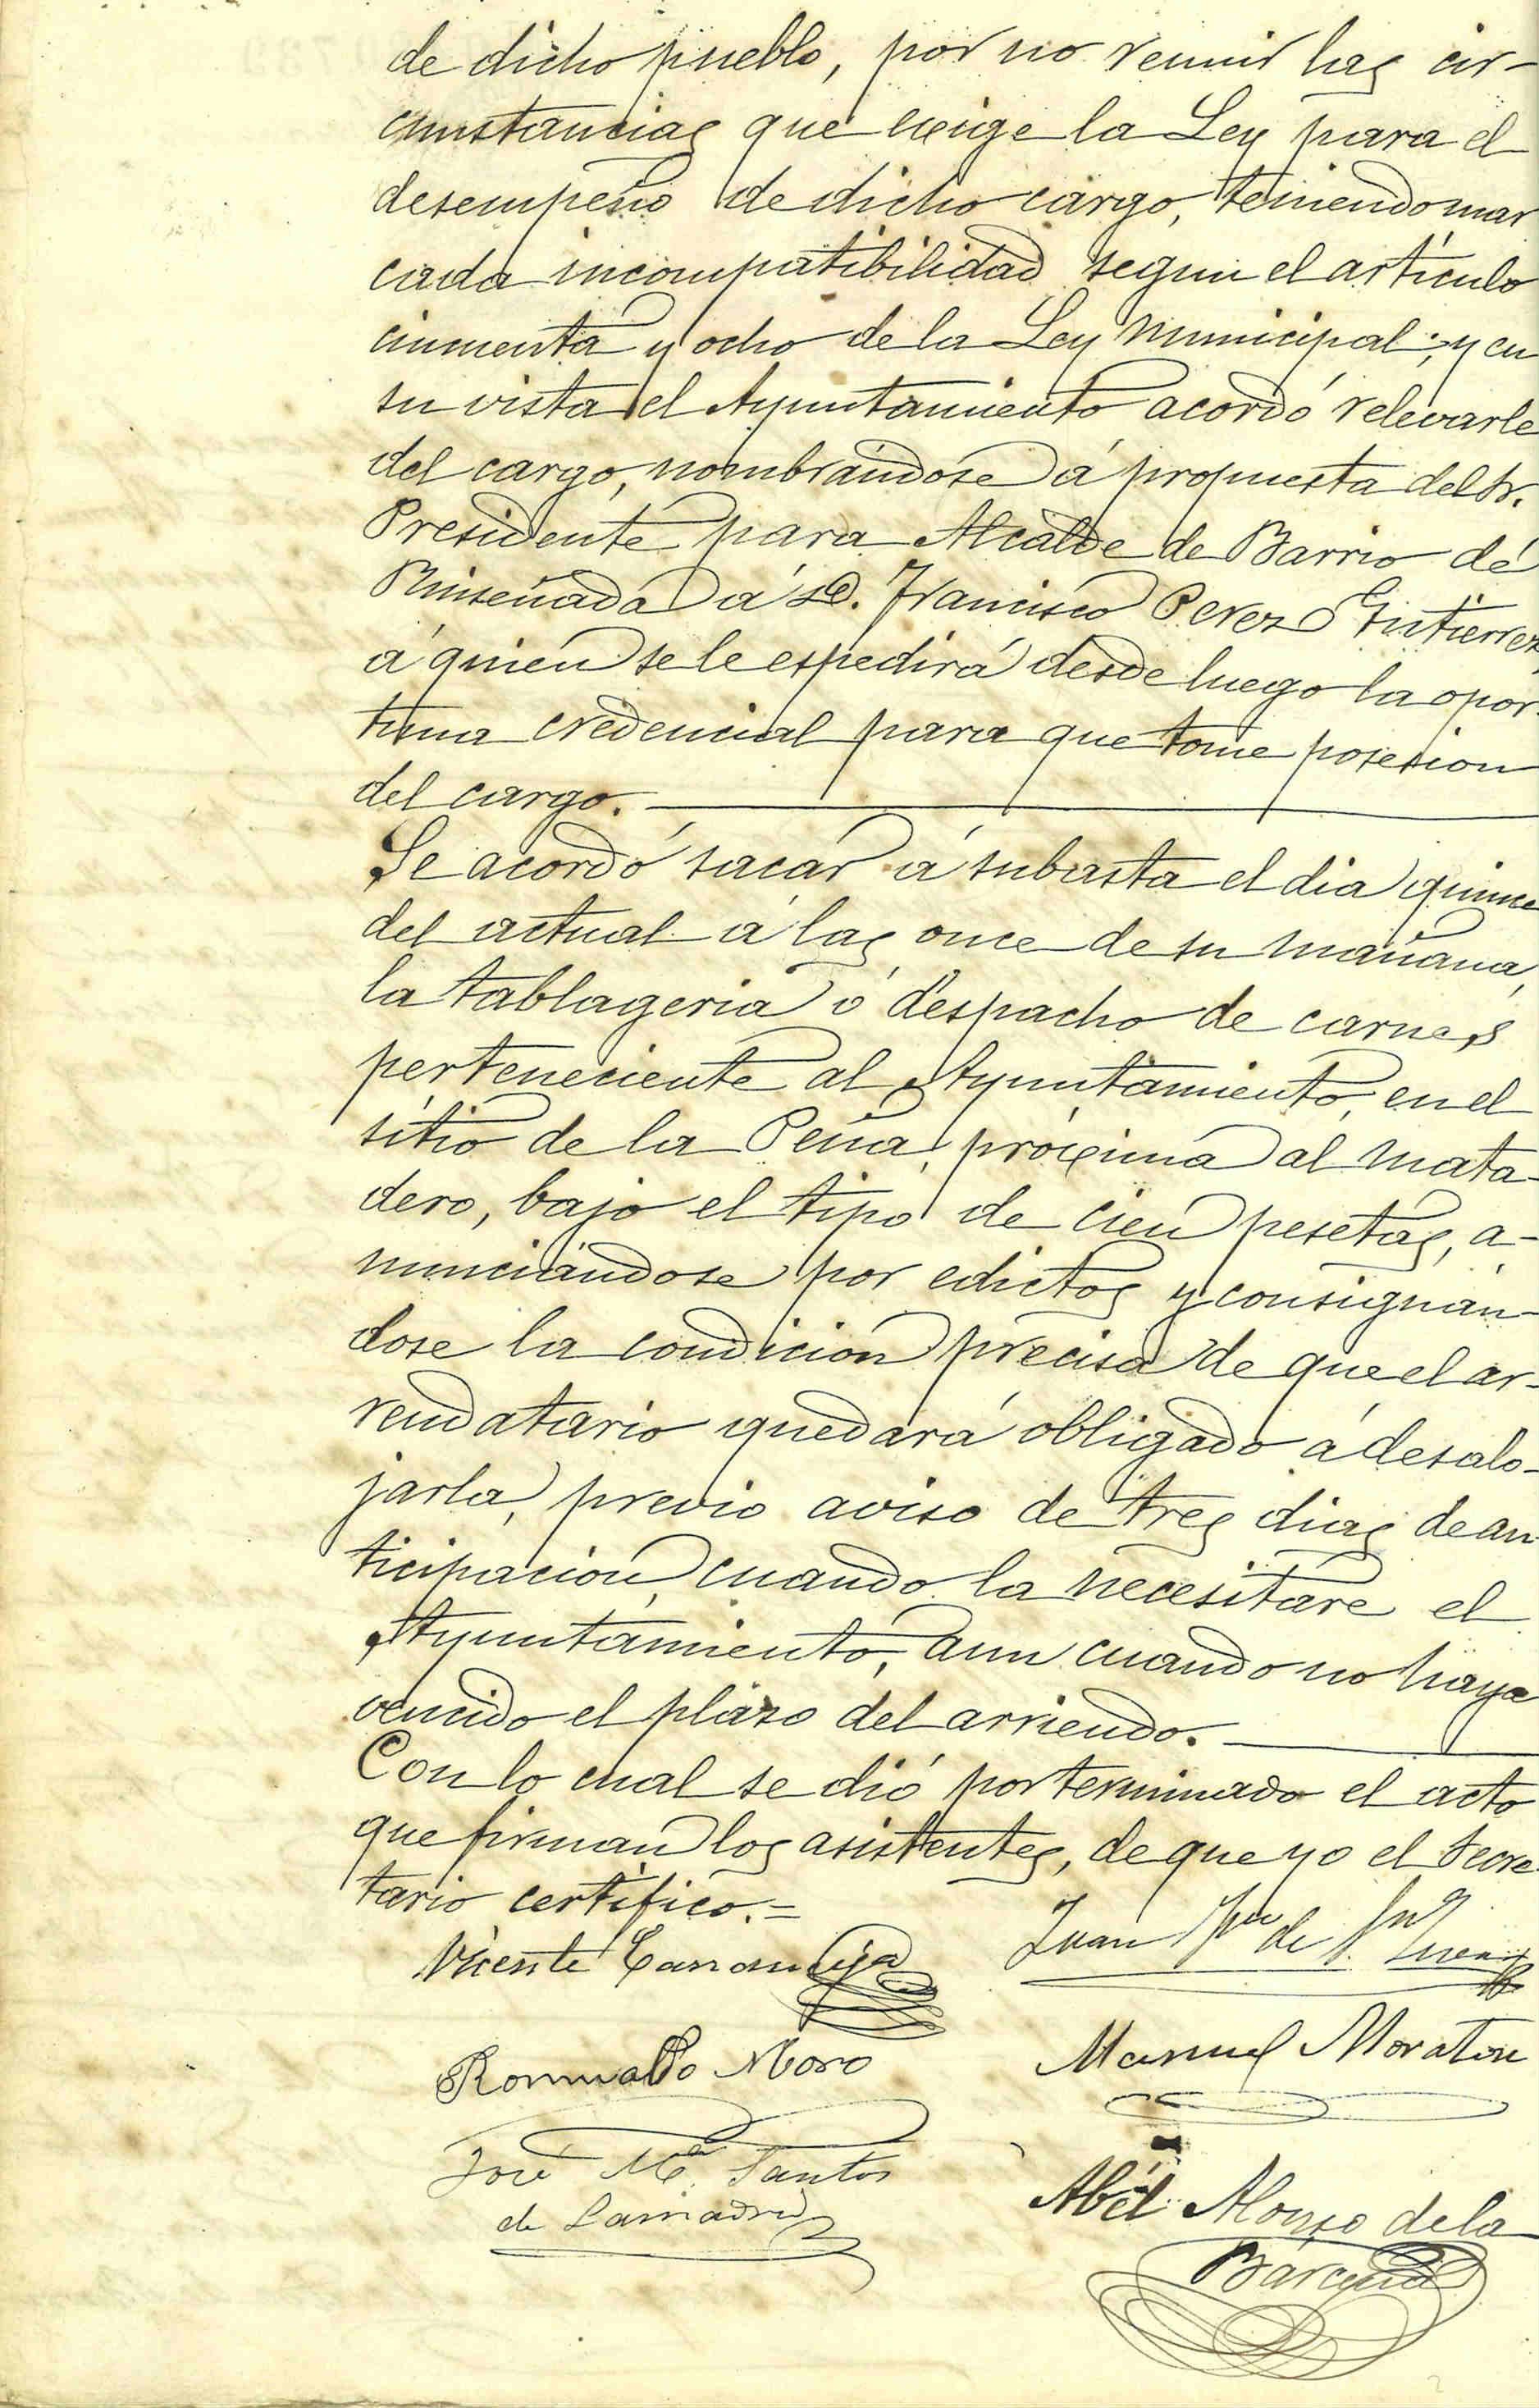 de dicho pueblo, por no reunir las cir-
cunstancias que exige la Ley para el
desempeño de dicho cargo, teniendo mar
cada incompatibilidad segun el artículo
cincuenta y ocho de la Ley Municipal; y en
su vista el Ayuntamiento acordó relevarle
del cargo, nombrándose á propuesta del Sr.
Presidente para Alcalde de Barrio de
á D. Francisco Perez Gutierrez,
á quien se le espedirá desde luego la opor-
tuna credencial para que tome posesion
del cargo.
Se acordó sacar á subasta el dia quince
del actual á las once de su mañana,
la tablageria ó despacho de carnes
perteneciente al Ayuntamiento, en el
sitio de la Peña, próxima al mata-
dero, bajo el tipo de cien pesetas, a-
nunciándose por edictos y consignán-
dose la condicion precisa de que el ar-
rendatario quedará obligado á desalo-
jarla, previo aviso de tres dias de an
ticipacion, cuando la necesitare el
Ayuntamiento, aun cuando no haya
vencido el plazo del arriendo.
Con lo cual se dió por terminado el acto
que firman los asistentes, de que yo el Secre
tario certifico.=
Vicente Juan de
Romualdo Moro Manuel Moraton
José Mª Santos
de Lamadrid
Abél Alonso de la
Bárcena